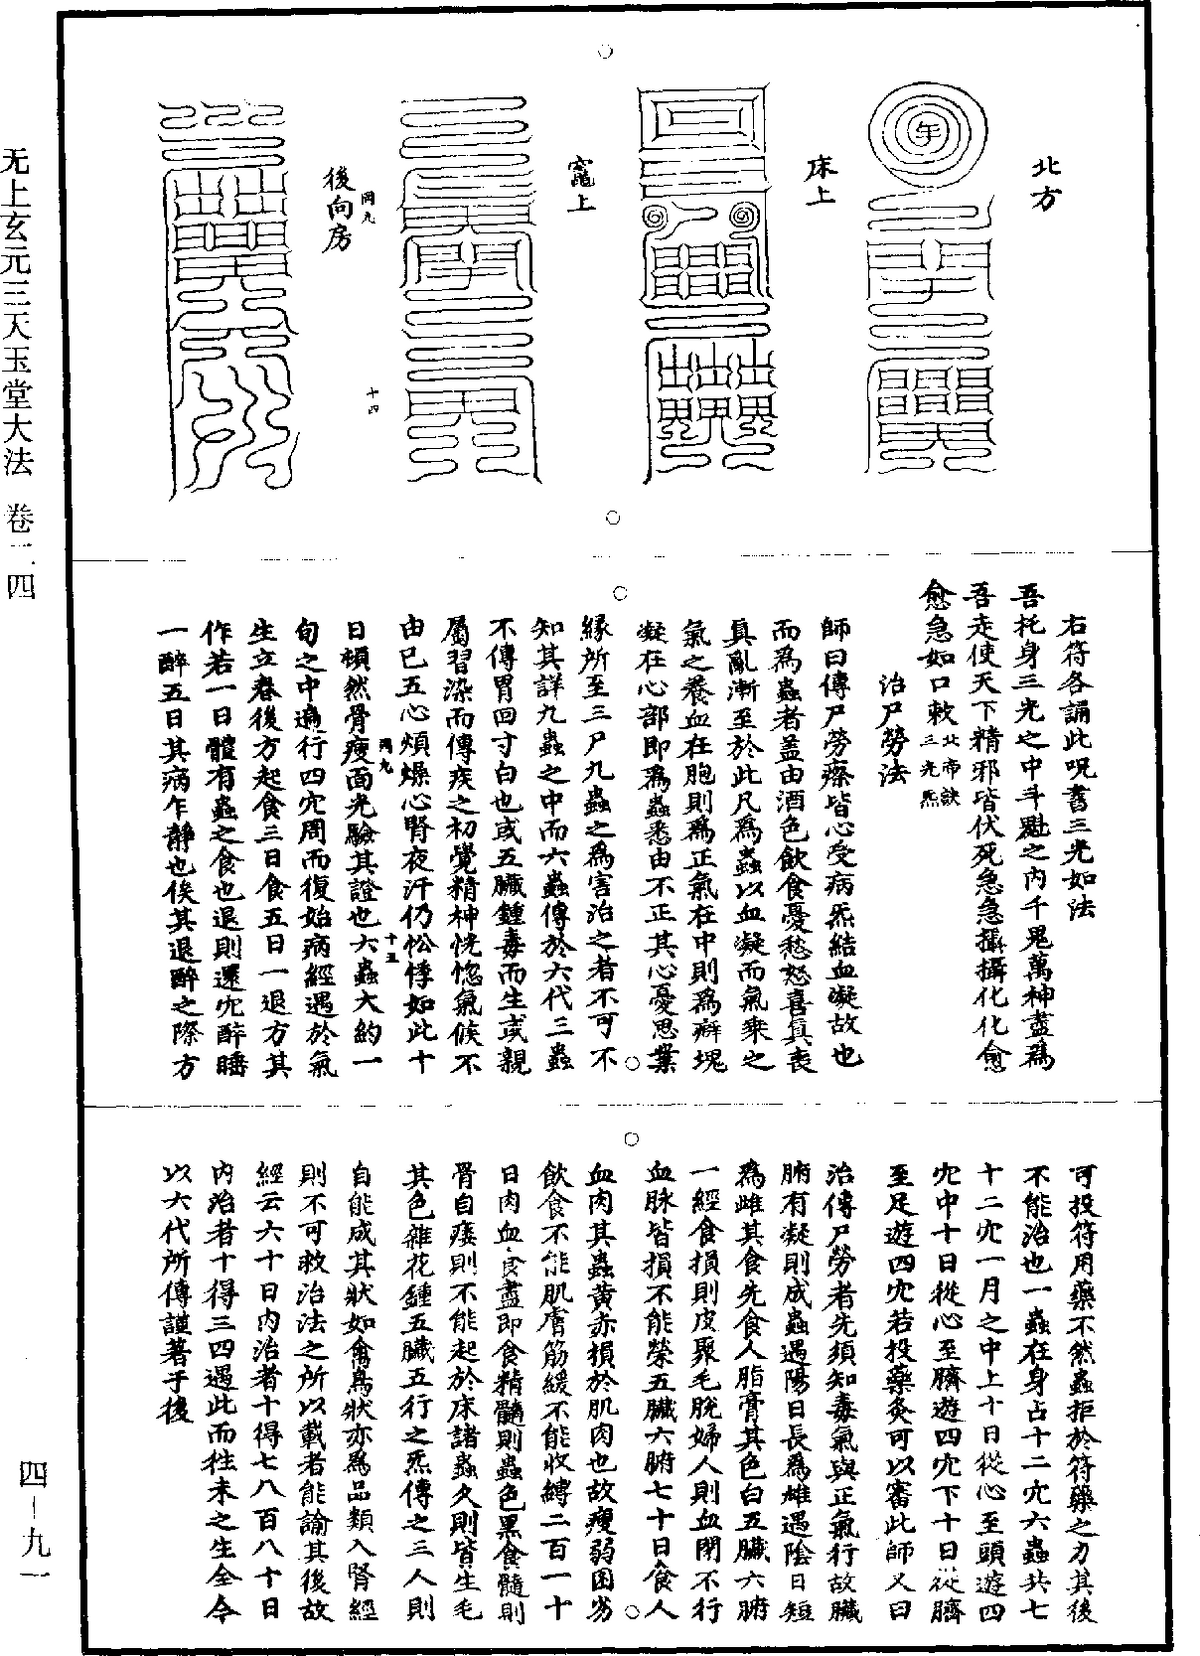 北方
床上
竈上
後向房
罔九
十四
右符各誦此呪書三光如法
吾托身三光之中斗魁之内千鬼萬神盡爲
吾走使天下精邪皆伏死急急攝攝化化愈
愈急如口敕北帝訣三光炁
治尸勞法
師曰傳尸勞瘵皆心受病炁結血凝故也
而爲蟲者蓋由酒色飲食憂愁怒喜真喪
真亂漸至於此凡爲蟲以血凝而氣乗之
氣之養血在胞則爲正氣在中則爲癖塊
凝在心部即爲蟲悉由不正其心憂思業
縁所至三尸九蟲之爲害治之者不可不
知其詳九蟲之中而六蟲傳於六代三蟲
不傳胃回寸白也或五臟鍾毒而生或親
屬習染而傳疾之初覺精神恍惚氣候不
由已五心煩燥心腎夜汗仍忪悸如此十
日頓然骨瘦面光驗其證也六蟲大約一
罔九
十五
旬之中遍行四穴周而復始病經遇於氣
生立春後方起食三日食五日一退方其
作若一日體有蟲之食也退則還穴醉睡
一醉五日其病乍靜也俟其退醉之際方
可投符用藥不然蟲拒於符藥之力其後
不能治也一蟲在身占十二穴六蟲共七
十二穴一月之中上十日從心至頭遊四
穴中十日從心至臍遊四穴下十日從臍
至足遊四穴若投藥灸可以審此師又曰
治傳尸勞者先須知毒氣與正氣行故臟
腑有凝則成蟲遇陽日長爲雄遇陰日短
爲雌其食先食人脂膏其色白五臟六腑
一經食損則皮聚毛脫婦人則血閉不行
血脉皆損不能榮五臟六腑七十日食人
血肉其蟲黄赤損於肌肉也故瘦弱困劣
飲食不能肌膚筋緩不能收縛二百一十
日肉血食盡即食精髓則蟲色黑食髓則
骨自痿則不能起於床諸蟲久則皆生毛
其色雜花鍾五臟五行之炁傳之三人則
自能成其狀如禽鳥狀亦爲品類入腎經
則不可救治法之所以載者能諭其後故
經云六十日内治者十得七八百八十日
内治者十得三四過此而往未之生全今
以六代所傳謹著于後
无上玄元三天玉堂大法 卷二四
四-九一